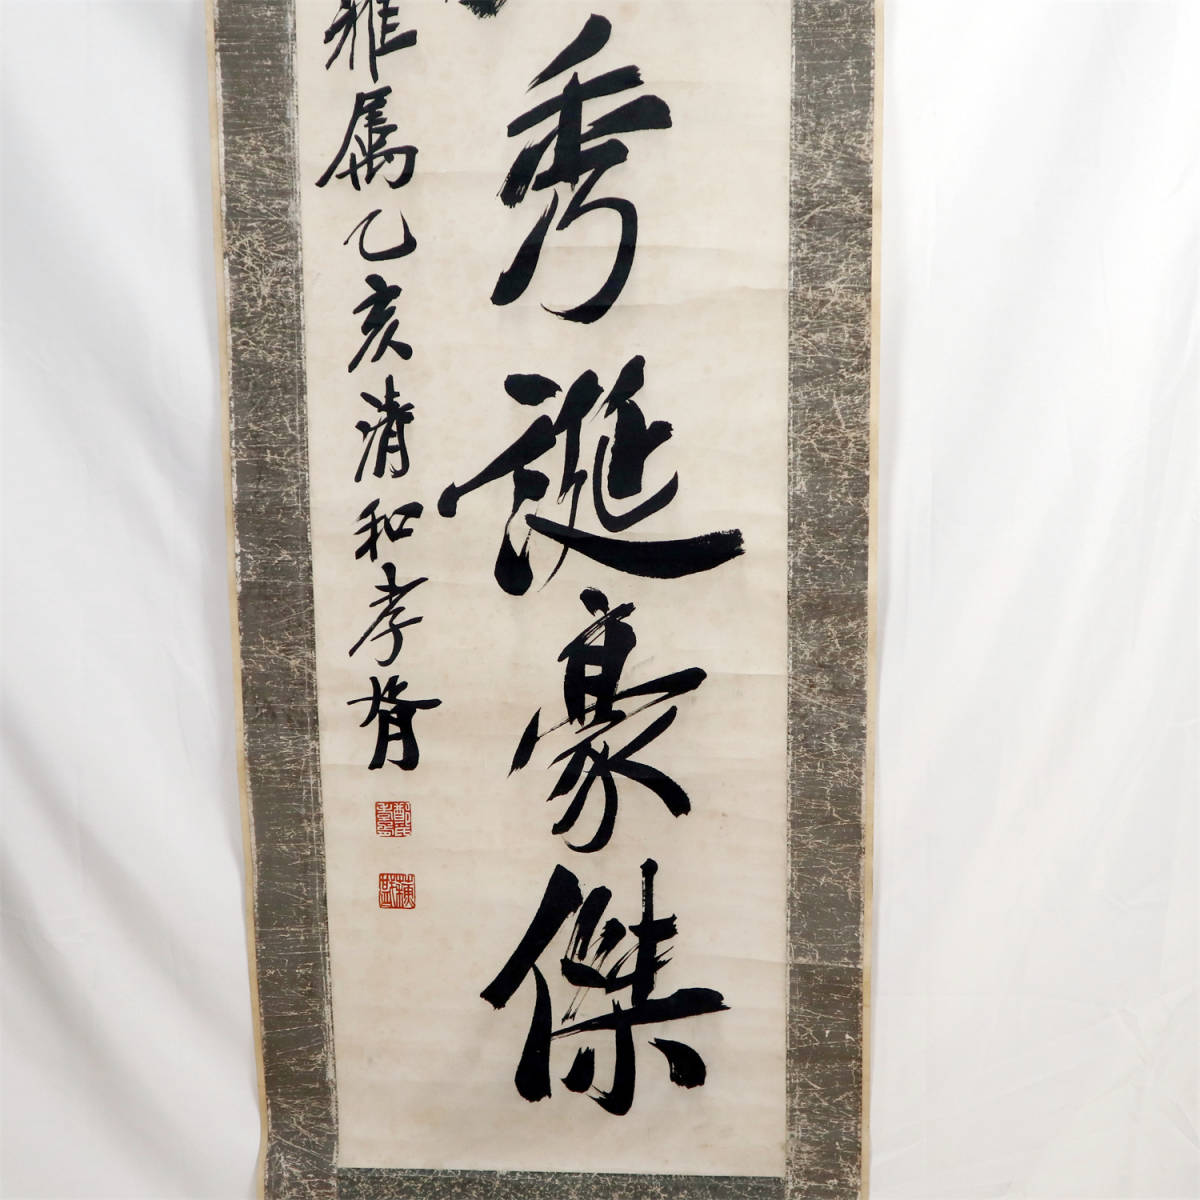 秀誕豪傑
雅属乙亥清和孝胥